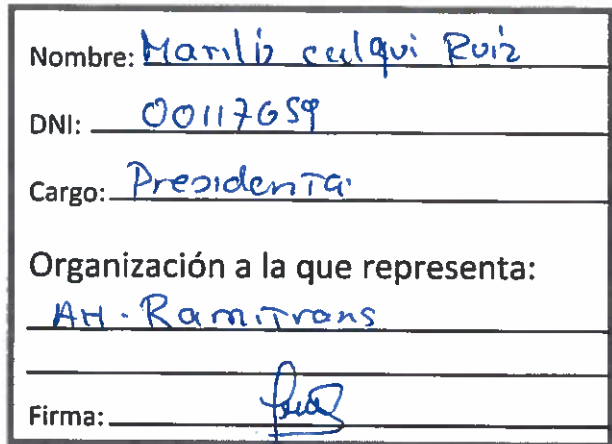 Nombre: Marilú Culqui Ruiz
DNI: 00117659
Cargo: Presidenta
Organización a la que representa:
AH. Ramitrans
Firma: